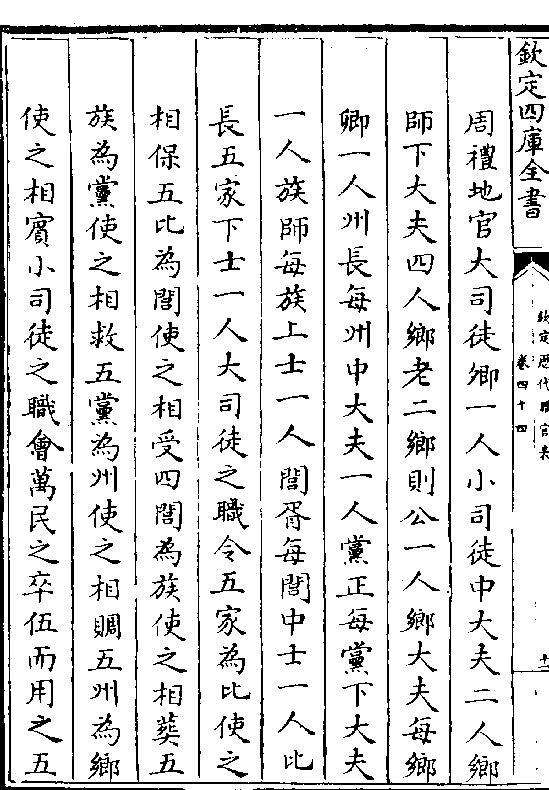 欽定四庫全書
欽定歴代職官表
卷四十四
十二
周禮地官大司徒卿一人小司徒中大夫二人鄉
師下大夫四人鄉老二鄉則公一人鄉大夫每鄉
卿一人州長每州中大夫一人黨正每黨下大夫
一人族師每族上士一人閭胥每閭中士一人比
長五家下士一人大司徒之職令五家為比使之
相保五比為閭使之相受四閭為族使之相葬五
族為黨使之相救五黨為州使之相賙五州為鄉
使之相賓小司徒之職會萬民之卒伍而用之五